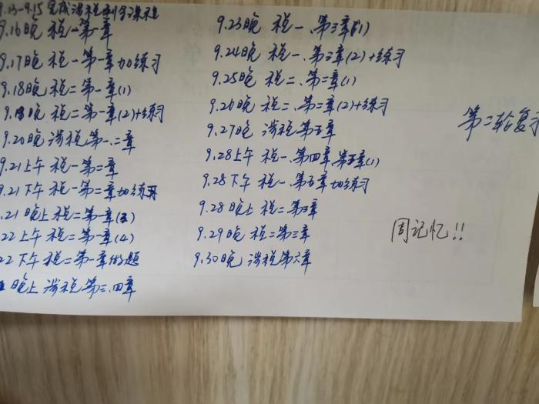 9.13-9.15 完成涉税
9.16晚 税一第一章
9.17晚 税一第一章加练习
9.18晚 税二第一章(1)
9.19晚 税二第一章(2)+练习
9.20晚 涉税第一、二章
9.21上午 税一第二章
9.21下午 税一第二章加练习
.21晚上 税二第一章(3)
22上午 税二第一章(4)
22下午 税二第一章做题
晚上 涉税第三、四章
9.23晚 税一、第三章(1)
9.24晚 税一、第三章(2)+练习
9.25晚 税二、第二章(1)
9.26晚 税二、第二章(2)+练习
9.27晚 涉税第五章
9.28上午 税一、第四章、第五章(1)
9.28下午 税一、第五章加练习
9.28晚上 税二第三章
9.29晚 税二第三章
9.30晚 涉税第六章
第二轮复习
周记忆!!